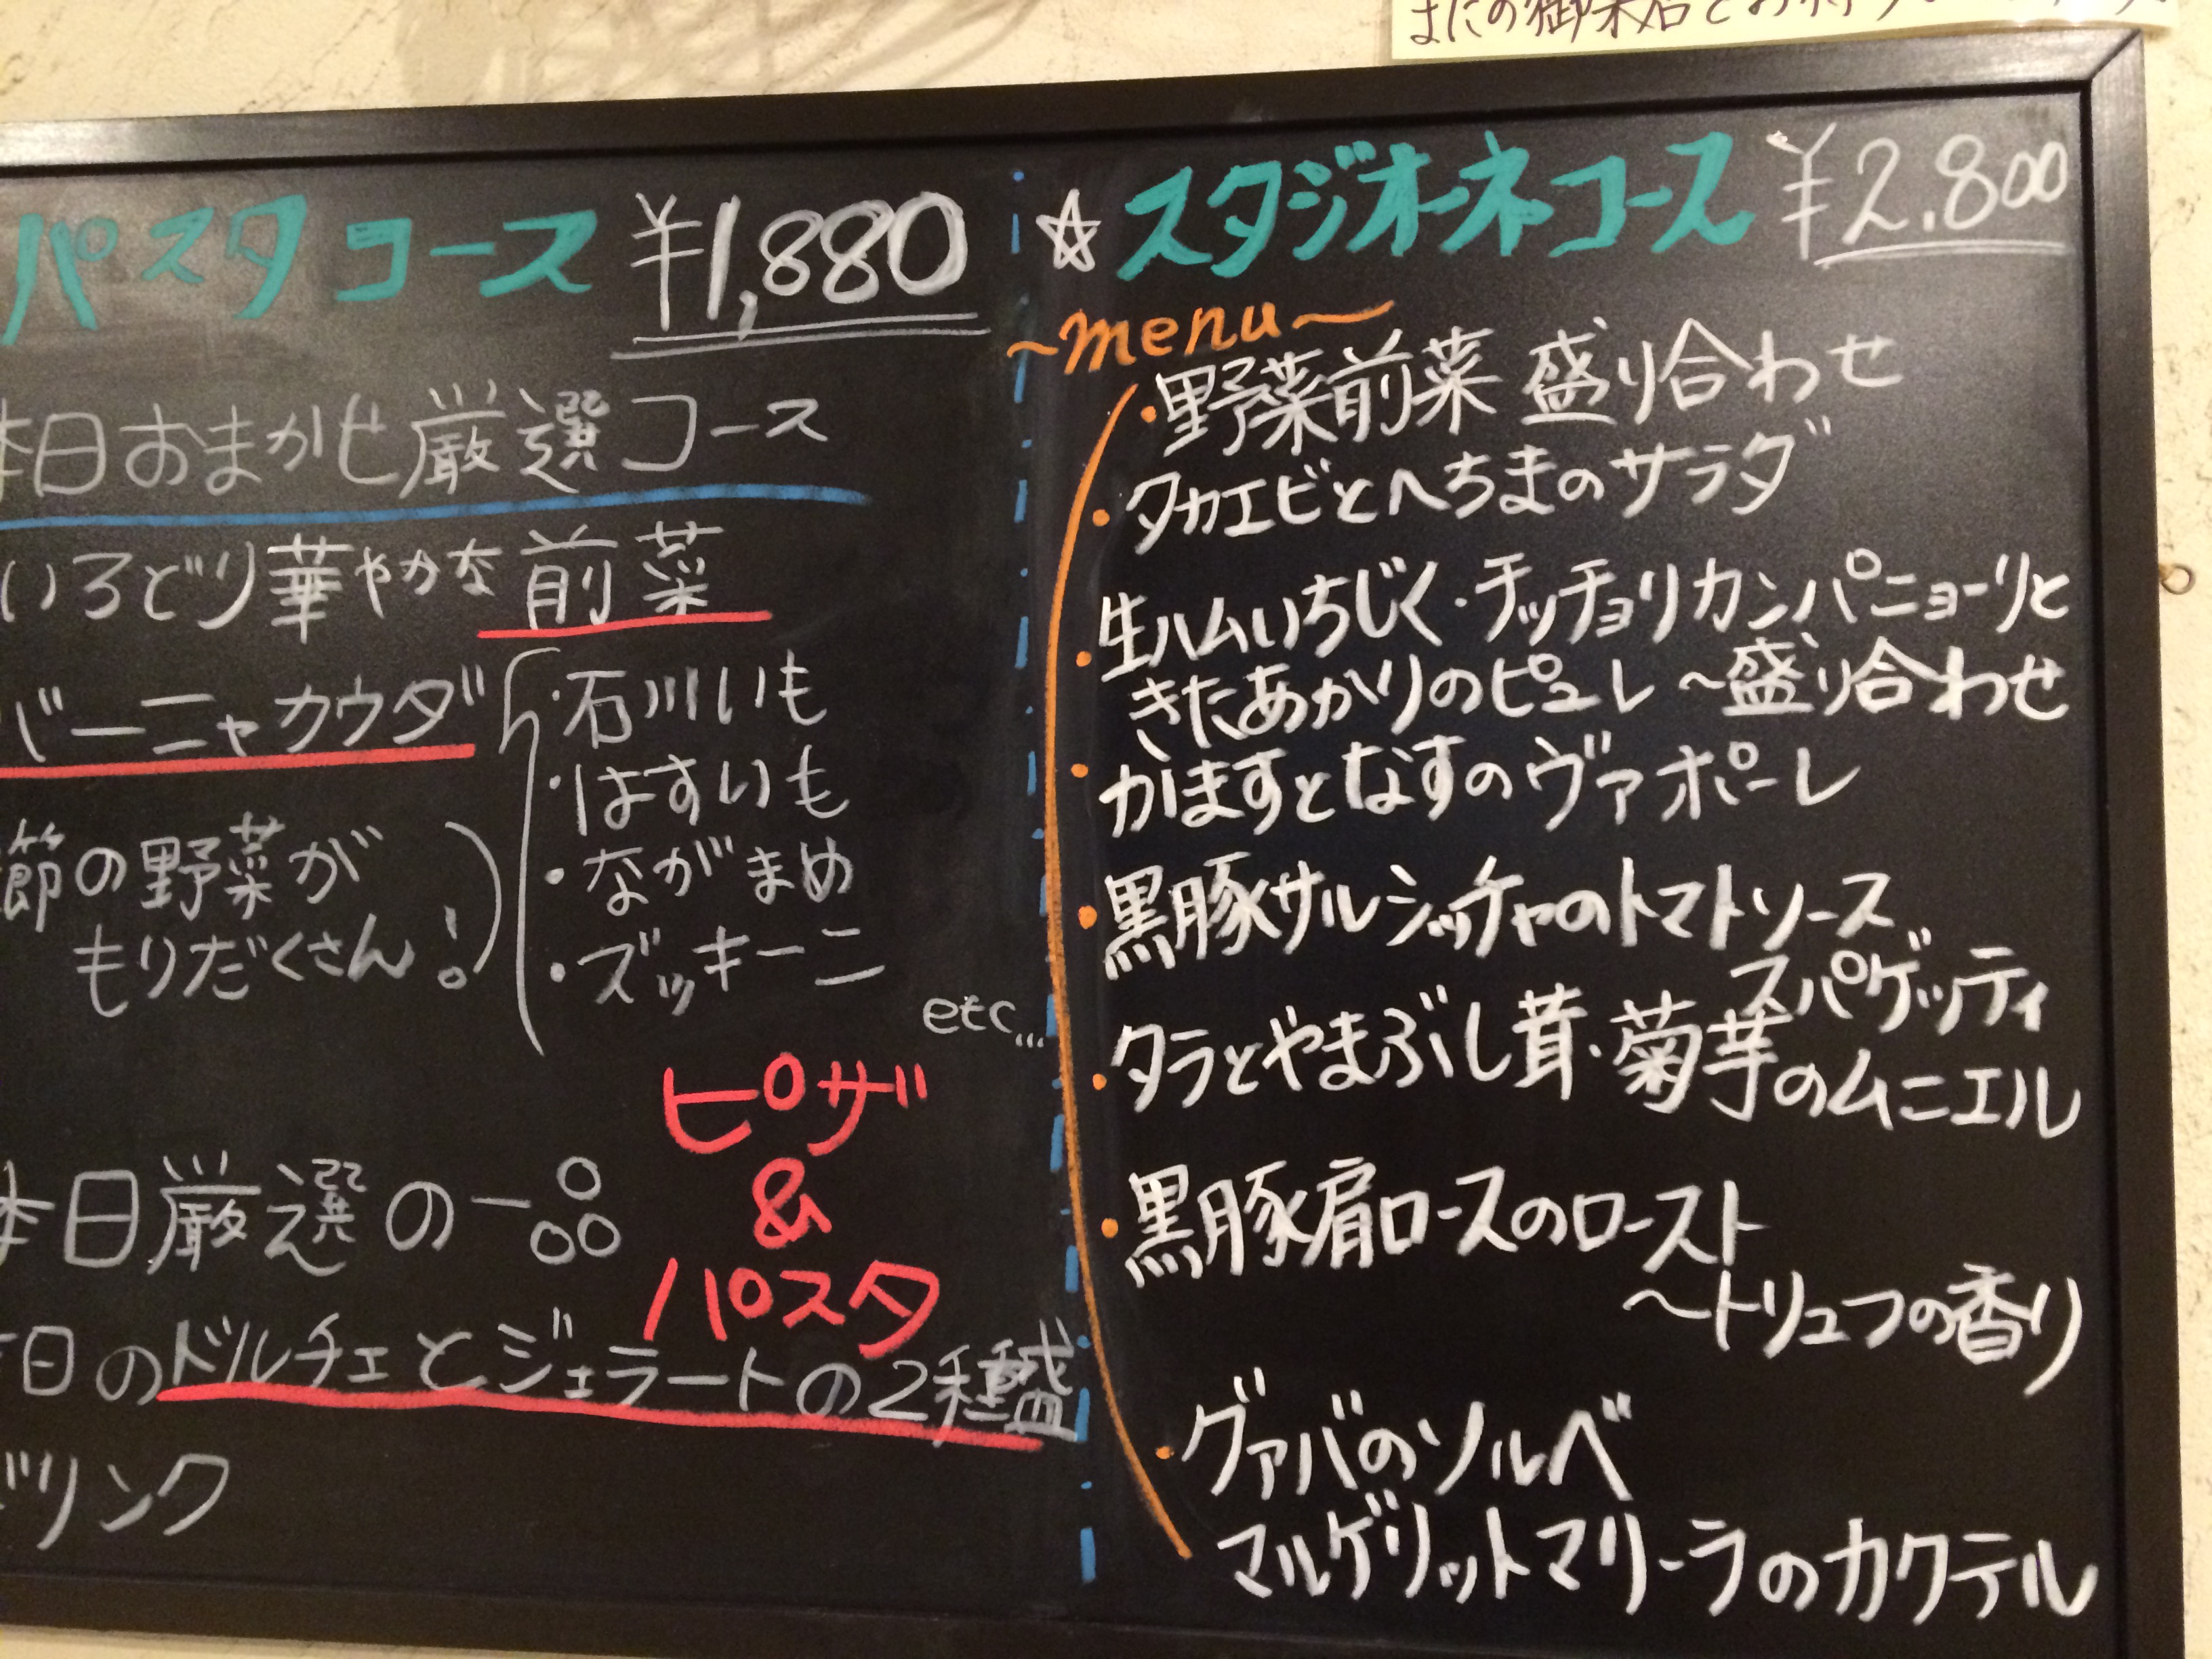 またの御来店をお待ち
パスタコース ¥1,880
本日おまかせ厳選コース
いろどり華やかな前菜
バーニャカウダ
・石川いも
・はすいも
・ながまめ
・ズッキーニ
etc...
節の野菜が
もりだくさん!)
本日厳選の一品
ピザ
&
パスタ
日のドルチェとジェラートの2種盛
ドリンク
☆スタジオーネコース ¥2.800
~menu~
・野菜前菜 盛り合わせ
・タカエビとへちまのサラダ
・生ハムいちじく・チッチョリカンパニョーリと
きたあかりのピュレ ~盛り合わせ
・かますとなすのヴァポーレ
・黒豚サルシッチャのトマトソース
スパゲッティ
・タラとやまぶし茸・菊芋のムニエル
・黒豚肩ロースのロースト
~トリュフの香り
・グァバのソルベ
マルゲリットマリーラのカクテル